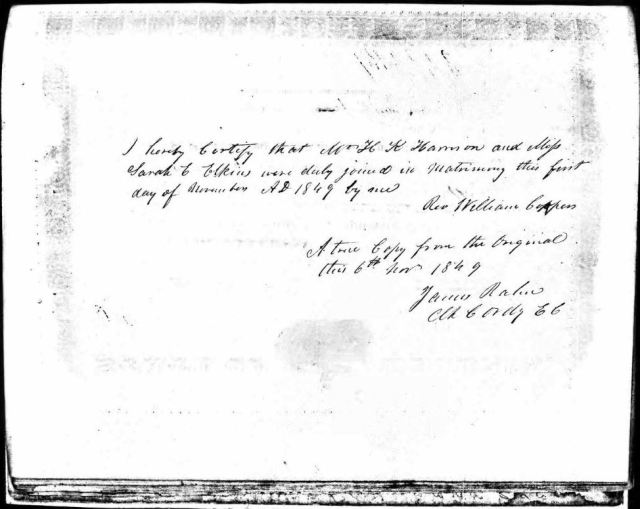 I hereby Certify that Mr H K Harrison and Miss
Sarah E Elkins were duly joined in Matrimony this first
day of November AD 1849 by me
Rev William
A true Copy from the Original
this 6th Nov 1849
James Rahn
Clk C Ordy E C